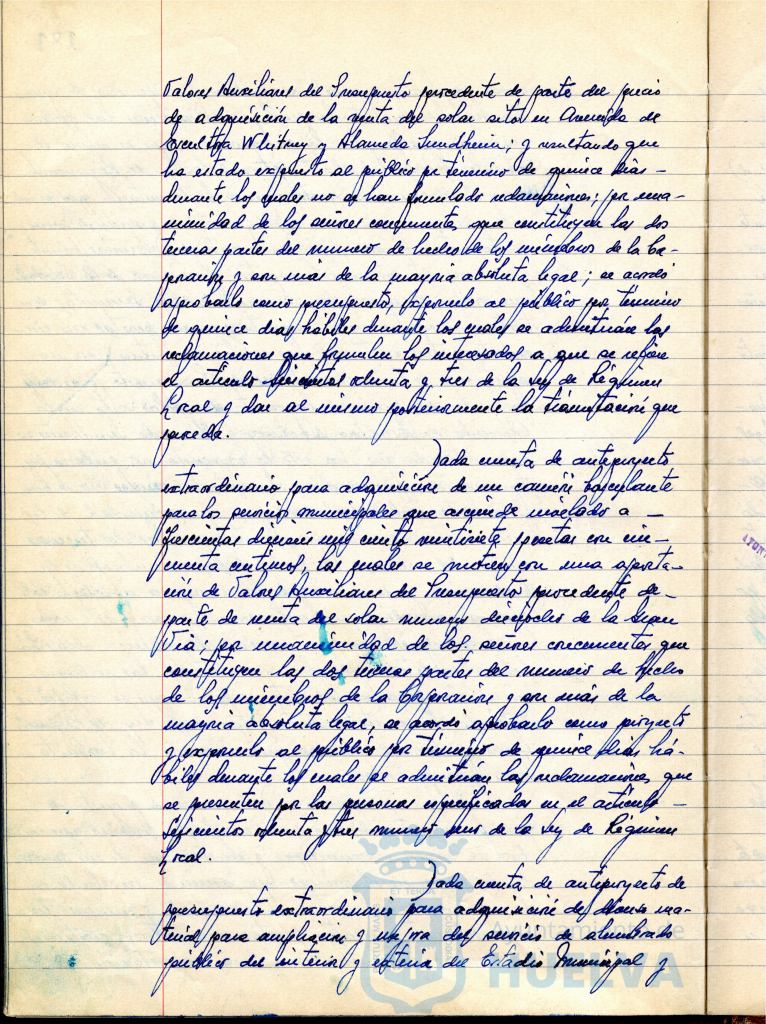 Valores Auxiliares del Presupuesto procedente de parte del precio
de adquisición de la venta del solar sito en Avenida de
Escultora Whitney y Alameda Sundheim; y resultando que
ha estado expuesto al público por término de quince dias —
durante los cuales no se han formulado reclamaciones; por una-
nimidad de los señores concurrentes que constituyen las dos
terceras partes del numero de hecho de los miembros de la Cor-
poración y son más de la mayoria absoluta legal; se acordó
aprobarlo como presupuesto, exponerlo al público por término
de quince dias hábiles durante los cuales se admitirán las
reclamaciones que formulen los interesados a que se refiere
el artículo seiscientos ochenta y tres de la Ley de Régimen
Local y dar al mismo posteriormente la tramitación que
proceda.
Dada cuenta de anteproyecto
extraordinario para adquisición de un camión basculante
para los servicios municipales que asciende nivelado a —
trescientas dieciseis mil ciento veintisiete pesetas con cin-
cuenta centimos, las cuales se nutren con una aporta-
ción de Valores Auxiliares del Presupuesto procedente de
parte de venta del solar numero dieciocho de la Gran
Via; por unanimidad de los señores concurrentes que
constituyen las dos terceras partes del numero de hecho
de los miembros de la Corporación y son más de la
mayoria absoluta legal, se acordó aprobarlo como proyecto
y exponerlo al público por término de quince dias há-
biles durante los cuales se admitirán las reclamaciones que
se presenten por las personas especificadas en el articulo —
seiscientos ochenta y tres numero uno de la Ley de Régimen
Local.
Dada cuenta de anteproyecto de
presupuesto extraordinario para adquisición de diverso ma-
terial para ampliación y mejora del servicio de alumbrado
público del interior y exterior del Estadio Municipal y
HUELVA